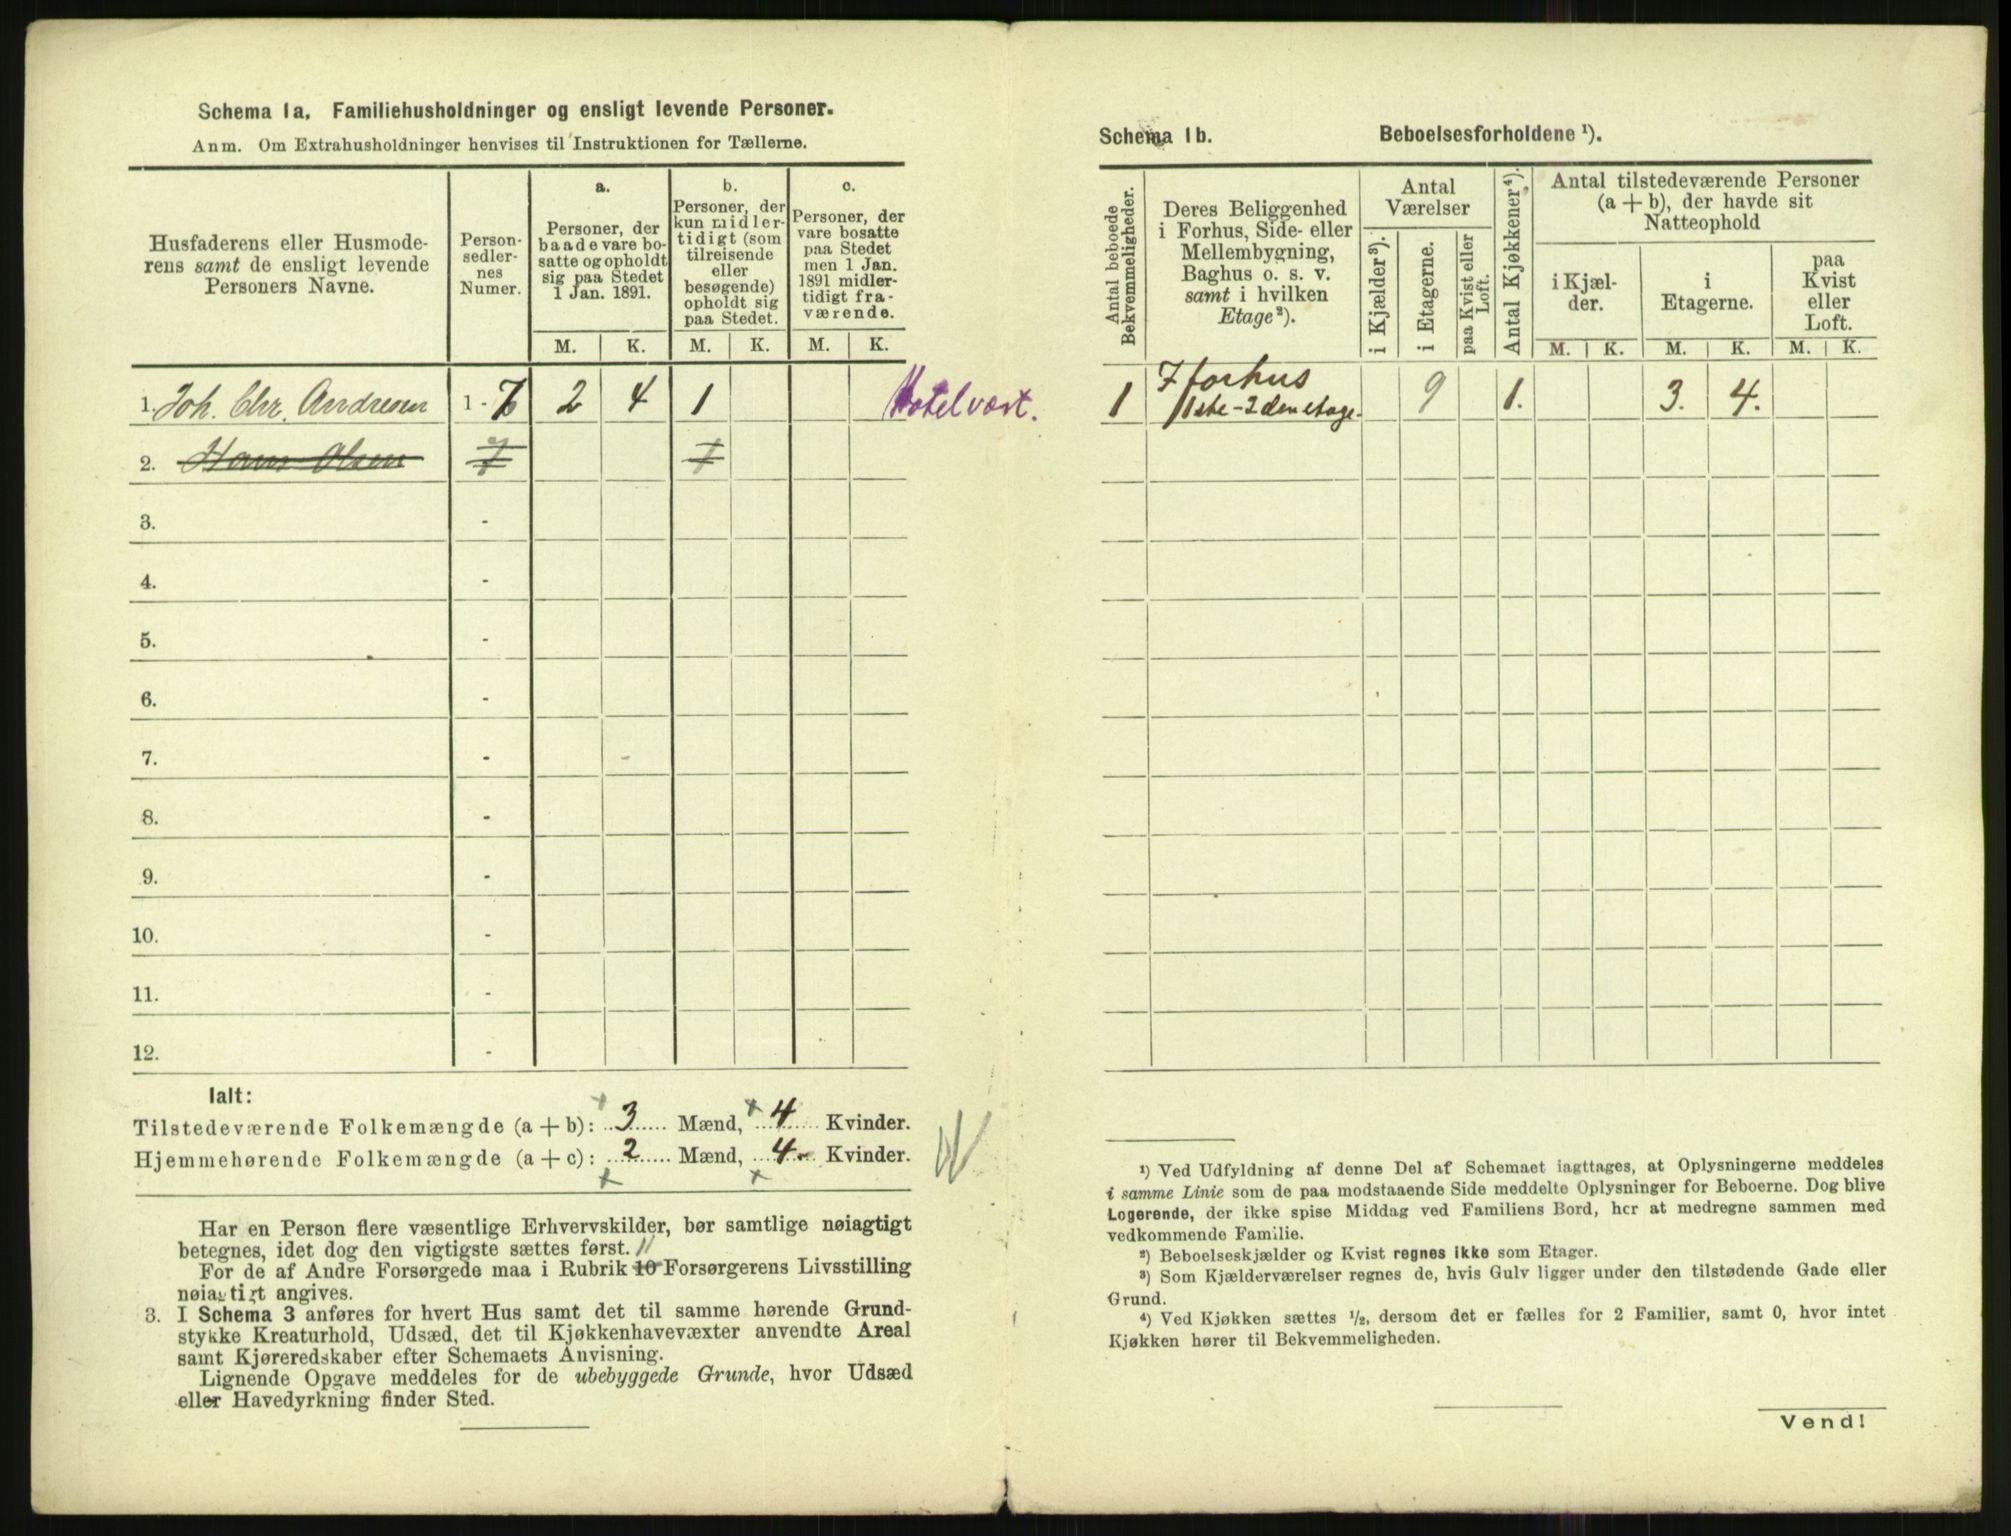 Schema 1a. Familiehusholdninger og ensligt levende Personer.
Anm. Om Extrahusholdninger henvises til Instruktionen for Tællerne.
Husfaderens eller Husmode-
rens samt de ensligt levende
Personers Navne.
Person-
sedler-
nes
Numer.
a.
Personer, der
baade vare bo-
satte og opholdt
sig paa Stedet
1 Jan. 1891.
b.
Personer, der
kun midler-
tidigt (som
tilreisende
eller
besøgende)
opholdt sig
paa Stedet.
c.
Personer, der
vare bosatte
paa Stedet
men 1 Jan.
1891 midler-
tidigt fra-
værende.
M. K. M. K. M. K.
1. Joh. Chr. Andresen 1 - 7 2 4 1 Hotelvært.
2. Hans Olsen 7 1
3. -
4. -
5. -
6. -
7. -
8. -
9. -
10. -
11. -
12. -
Ialt:
Tilstedeværende Folkemængde (a + b): 3 Mænd, 4 Kvinder.
Hjemmehørende Folkemængde (a + c): 2 Mænd, 4 Kvinder.
Har en Person flere væsentlige Erhvervskilder, bør samtlige nøiagtigt
betegnes, idet dog den vigtigste sættes først. 11
For de af Andre Forsørgede maa i Rubrik 10 Forsørgerens Livsstilling
nøiagtigt angives.
3. I Schema 3 anføres for hvert Hus samt det til samme hørende Grund-
stykke Kreaturhold, Udsæd, det til Kjøkkenhavevæxter anvendte Areal
samt Kjøreredskaber efter Schemaets Anvisning.
Lignende Opgave meddeles for de ubebyggede Grunde, hvor Udsæd
eller Havedyrkning finder Sted.
Schema 1b. Beboelsesforholdene ¹).
Antal beboede
Bekvemmeligheder.
Deres Beliggenhed
i Forhus, Side- eller
Mellembygning,
Baghus o. s. v.
samt i hvilken
Etage ²).
Antal
Værelser
i Kjælder ³).
i Etagerne.
paa Kvist eller
Loft.
Antal Kjøkkener ⁴).
Antal tilstedeværende Personer
(a + b), der havde sit
Natteophold
i Kjæl-
der.
i
Etagerne.
paa
Kvist
eller
Loft.
M. K. M. K. M. K.
1 I forhus
1ste - 2den etage. 9 1. 3. 4.
¹) Ved Udfyldning af denne Del af Schemaet iagttages, at Oplysningerne meddeles
i samme Linie som de paa modstaaende Side meddelte Oplysninger for Beboerne. Dog blive
Logerende, der ikke spise Middag ved Familiens Bord, her at medregne sammen med
vedkommende Familie.
²) Beboelseskjælder og Kvist regnes ikke som Etager.
³) Som Kjælderværelser regnes de, hvis Gulv ligger under den tilstødende Gade eller
Grund.
⁴) Ved Kjøkken sættes ½, dersom det er fælles for 2 Familier, samt 0, hvor intet
Kjøkken hører til Bekvemmeligheden.
Vend!